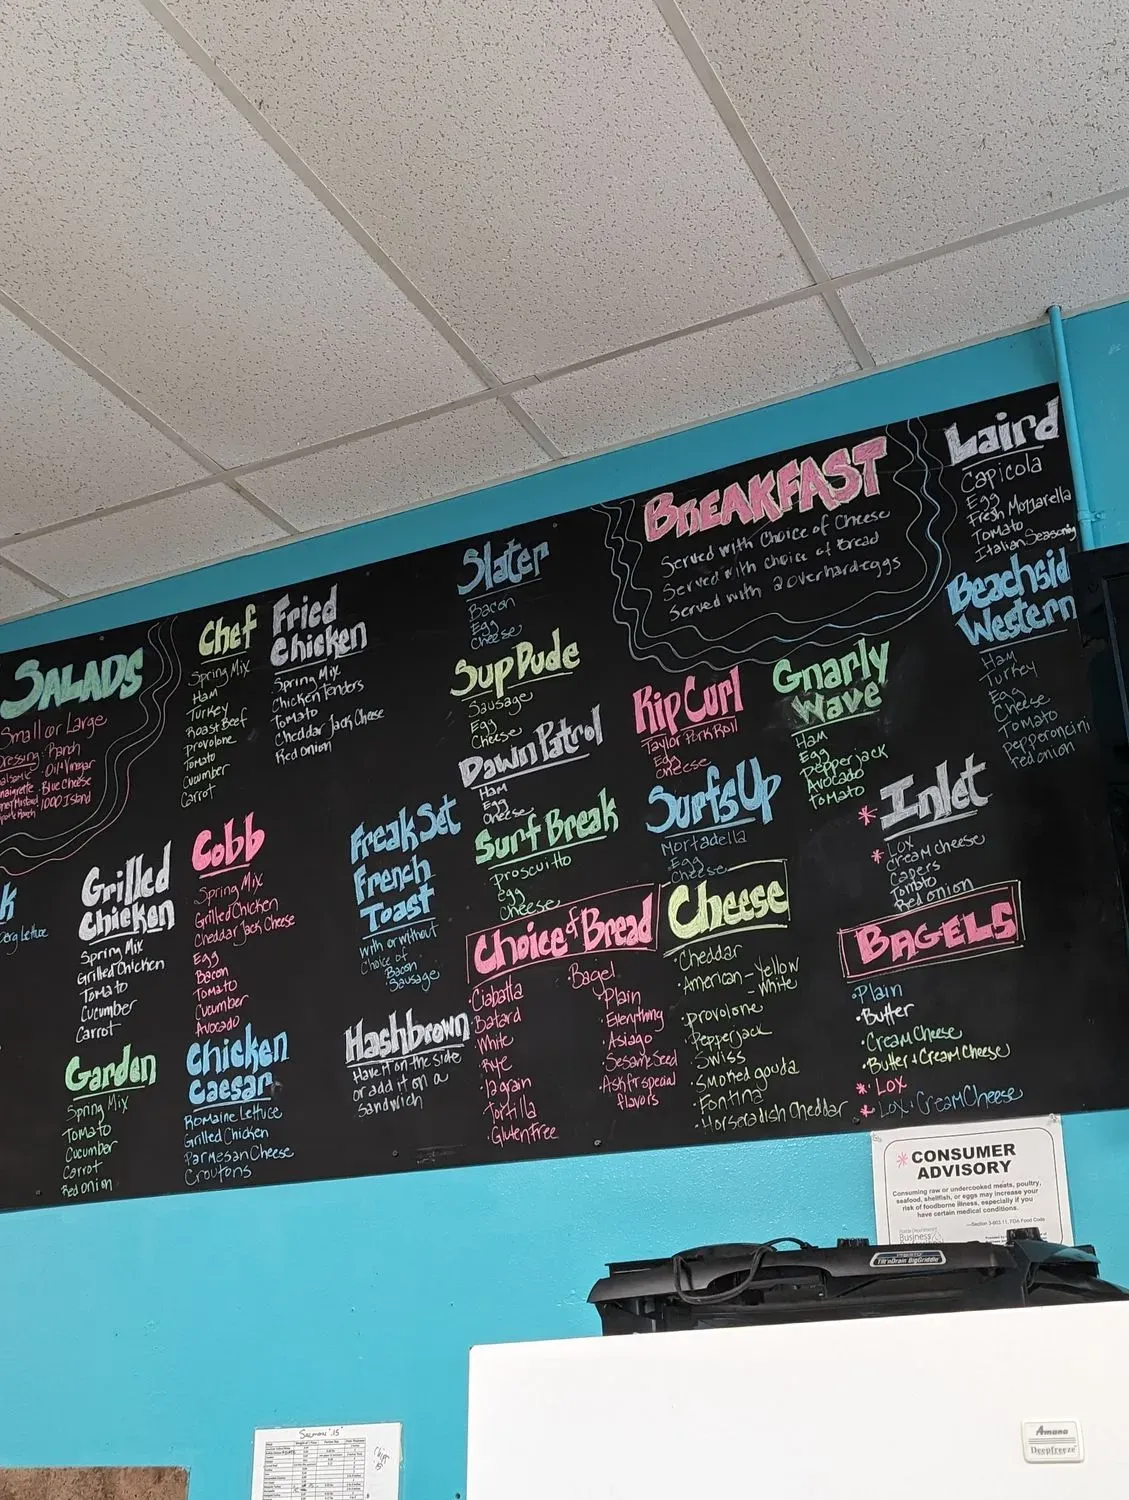 SALADS
Small or Large
Dressing: Ranch
Oil & Vinegar
Blue Cheese
1000 Island
Chef
Spring Mix
Ham
Turkey
Roast Beef
provolone
Tomato
Cucumber
Carrot
Fried
Chicken
Spring Mix
Chicken Tenders
Tomato
Cheddar Jack Cheese
Red onion
Grilled
Chicken
Spring Mix
Grilled Chicken
Tomato
Cucumber
Carrot
Cobb
Spring Mix
Grilled Chicken
Cheddar Jack Cheese
Egg
Bacon
Tomato
Cucumber
Avocado
Garden
Spring Mix
Tomato
Cucumber
Carrot
Red onion
Chicken
Caesar
Romaine Lettuce
Grilled Chicken
Parmesan Cheese
Croutons
BREAKFAST
Served with Choice of Cheese
Served with choice of Bread
Served with 2 overhard eggs
Slater
Bacon
Egg
Cheese
Sup Dude
Sausage
Egg
Cheese
Dawn Patrol
Ham
Egg
Cheese
Surf Break
Proscuitto
Egg
Cheese
Freak Set
French
Toast
with or without
Choice of
Bacon
Sausage
Hashbrown
Have it on the side
or add it on a
Sandwich
Rip Curl
Taylor Pork Roll
Egg
Cheese
Surfs Up
Mortadella
Egg
Cheese
Gnarly
Wave
Ham
Egg
Pepperjack
Avocado
Tomato
Laird
Capicola
Egg
Fresh Mozzarella
Tomato
Italian Seasoning
Beachside
Western
Ham
Turkey
Egg
Cheese
Tomato
Pepperoncini
red onion
* Inlet
* Lox
Cream cheese
Capers
Tomato
Red Onion
Choice of Bread
• Ciabatta
• Batard
• White
• Rye
• 12 grain
• Tortilla
• Gluten Free
• Bagel
• Plain
• Everything
• Asiago
• Sesame Seed
• Ask for special
flavors
Cheese
• Cheddar
• American - Yellow
- White
• provolone
• Pepperjack
• Swiss
• Smoked gouda
• Fontina
• Horseradish Cheddar
BAGELS
• Plain
• Butter
• Cream Cheese
• Butter + Cream Cheese
* • Lox
* • Lox + Cream Cheese
* CONSUMER
ADVISORY
Consuming raw or undercooked meats, poultry,
seafood, shellfish, or eggs may increase your
risk of foodborne illness, especially if you
have certain medical conditions.
—Section 3-603.11, FDA Food Code
Business
Tilt'nDrain BigGriddle
Amana
Deepfreeze